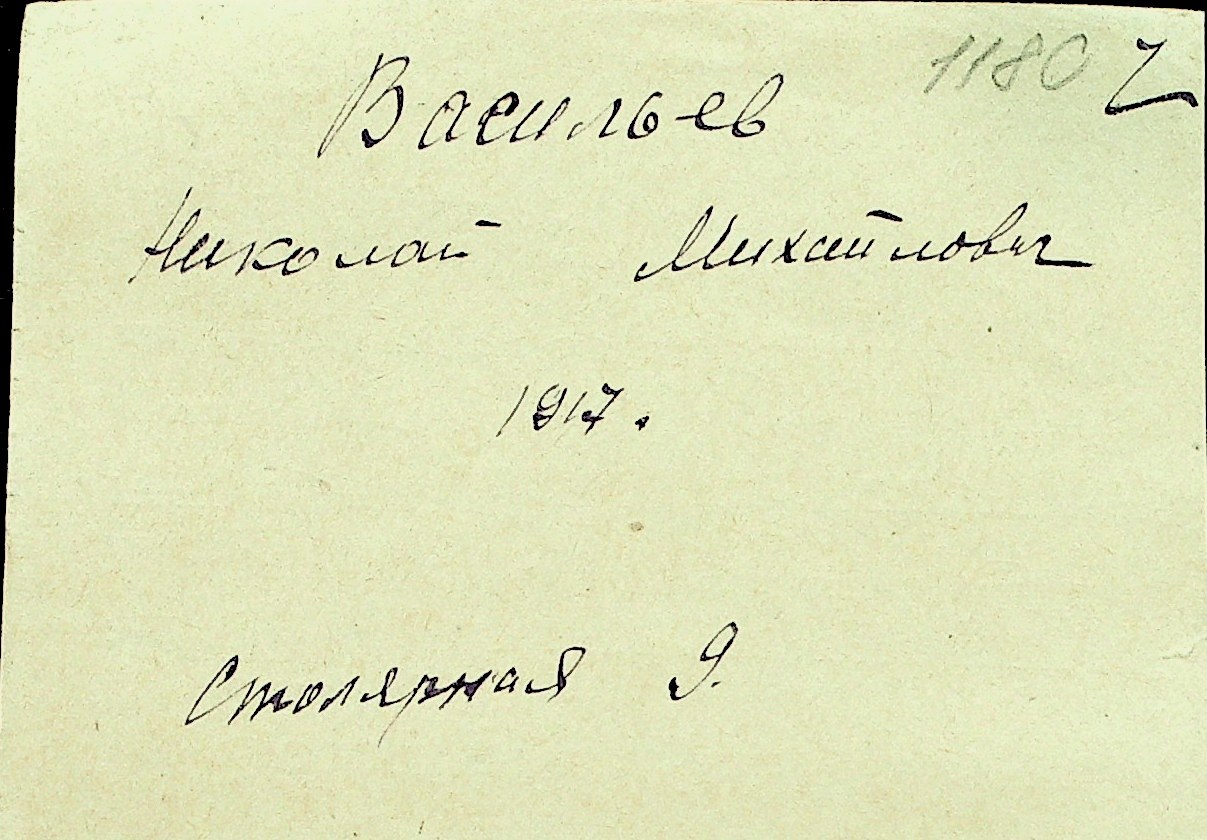 1180
Васильев
Николай Михайлович
1917.
Столярная 9.